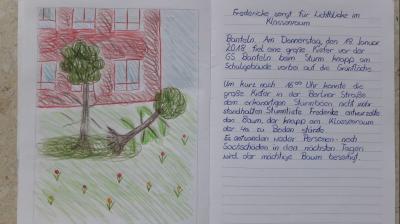 Fredericke sorgt für Lichtblicke im
Klassenraum
Banteln. Am Donnerstag, den 18. Januar
2018 fiel eine große Kiefer vor der
GS Banteln beim Sturm knapp am
Schulgebäude vorbei auf die Grünfläche.
Um kurz nach 16°° Uhr konnte die
große Kiefer in der Berliner Straße
dem orkanartigen Sturmböen nicht mehr
standhalten. Sturmtief Frederike entwurzelte
den Baum, der knapp am Klassenraum
der 4a zu Boden stürzte.
Es entstanden weder Personen- noch
Sachschäden in den nächsten Tagen
wird der mächtige Baum beseitigt.